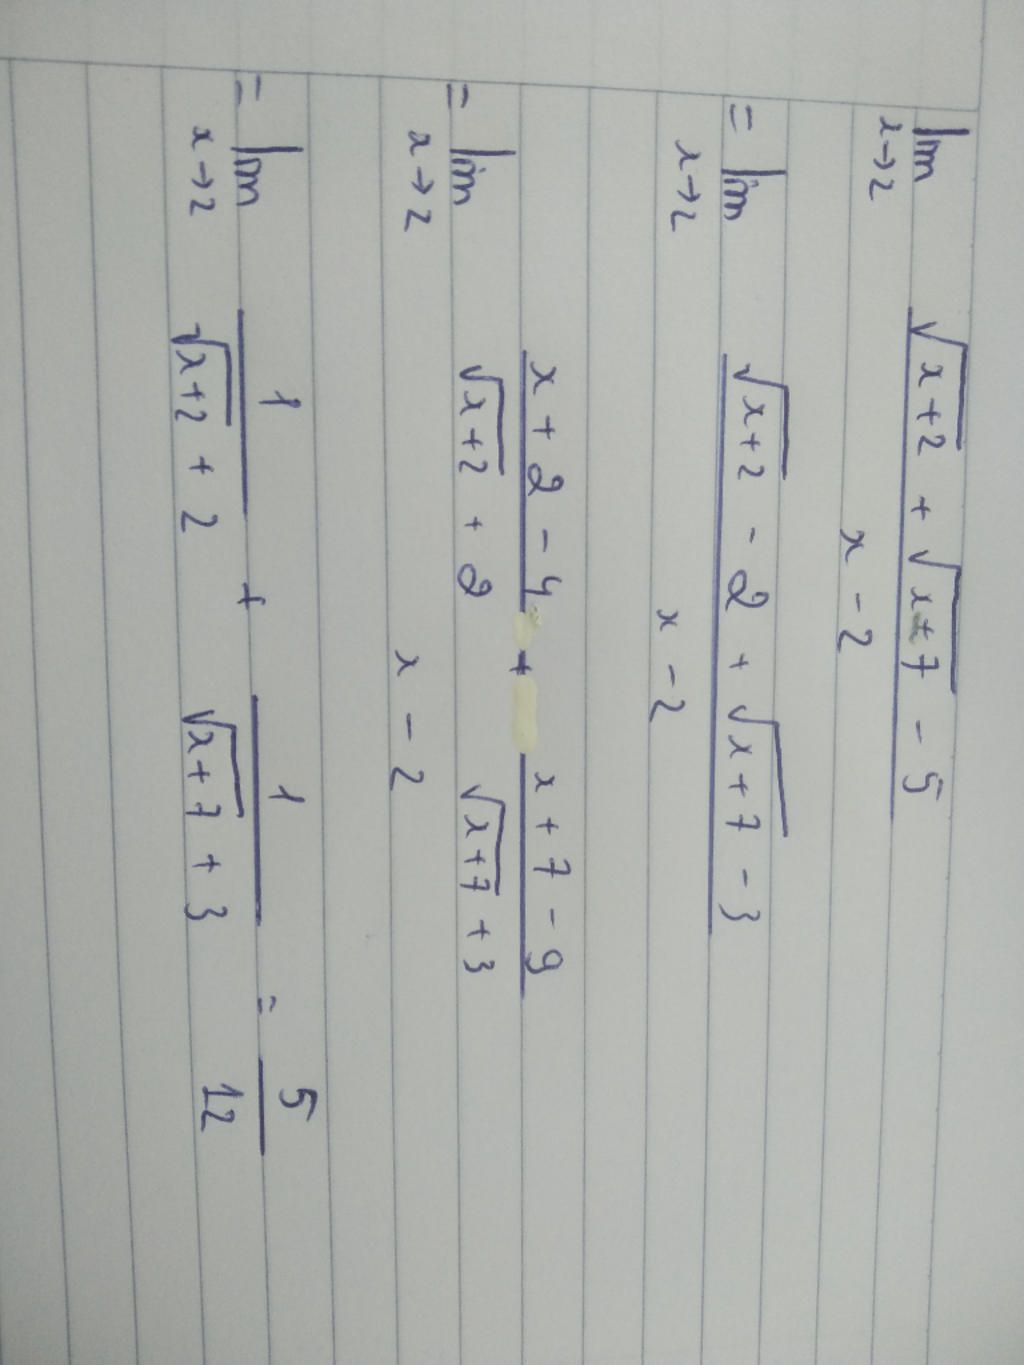 lim x→2 (√(x+2) + √(x+7) - 5) / (x - 2)
= lim x→2 (√(x+2) - 2 + √(x+7) - 3) / (x - 2)
= lim x→2 ((x + 2 - 4) / (√(x+2) + 2) + (x + 7 - 9) / (√(x+7) + 3)) / (x - 2)
= lim x→2 1 / (√(x+2) + 2) + 1 / (√(x+7) + 3) = 5 / 12